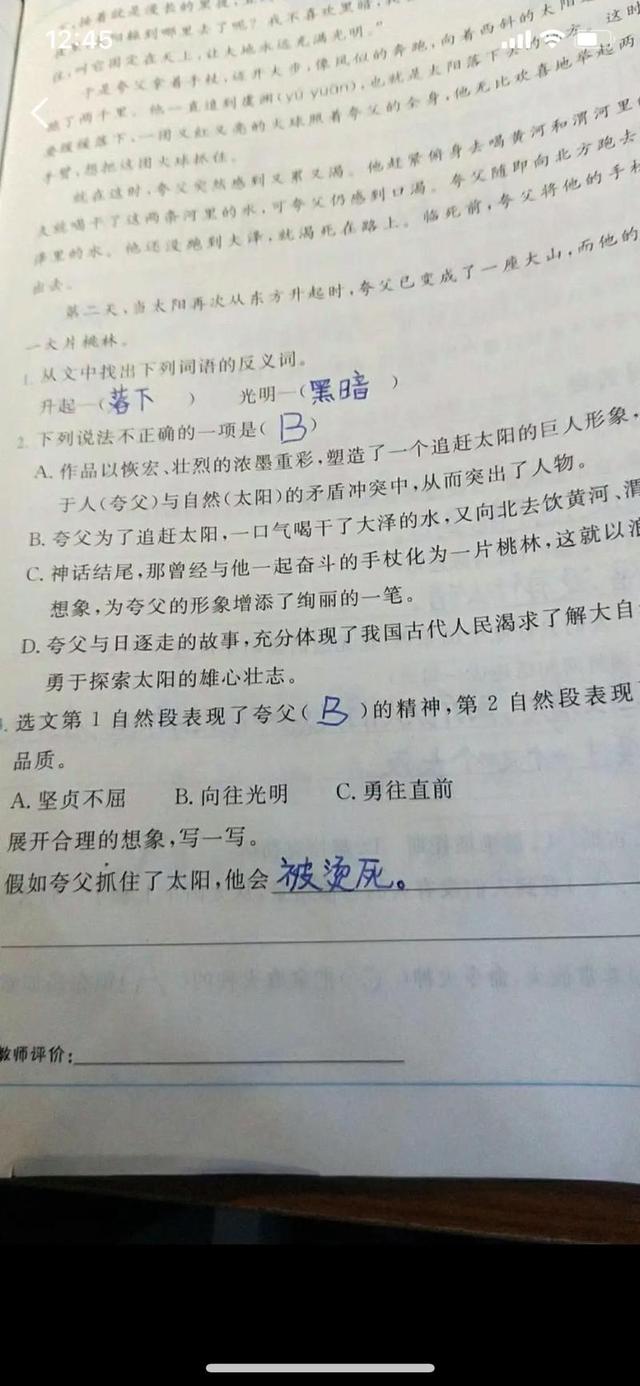 12:45
,接着就是漫长的黑夜,
住,叫它固定在天上,让大地永远充满光明。”
于是夸父拿着手杖,迈开大步,像风似的奔跑,向着西斜的太阳
跑了两千里。他一直追到虞渊(yú yuān),也就是太阳落下去的地方。这时
要缓缓落下,一团又红又亮的火球照着夸父的全身,他无比欢喜地举起两
手臂,想把这团火球抓住。
就在这时,夸父突然感到又累又渴。他赶紧俯身去喝黄河和渭河里
就喝干了这两条河里的水,可夸父仍感到口渴。夸父随即向北方跑去
泽里的水。他还没跑到大泽,就渴死在路上。临死前,夸父将他的手杖
出去。
第二天,当太阳再次从东方升起时,夸父已变成了一座大山,而他的
一大片桃林。
1. 从文中找出下列词语的反义词。
升起—(落下 ) 光明—(黑暗 )
2. 下列说法不正确的一项是( B )
A. 作品以恢宏、壮烈的浓墨重彩,塑造了一个追赶太阳的巨人形象,
于人(夸父)与自然(太阳)的矛盾冲突中,从而突出了人物。
B. 夸父为了追赶太阳,一口气喝干了大泽的水,又向北去饮黄河、渭
C. 神话结尾,那曾经与他一起奋斗的手杖化为一片桃林,这就以浪
想象,为夸父的形象增添了绚丽的一笔。
D. 夸父与日逐走的故事,充分体现了我国古代人民渴求了解大自
勇于探索太阳的雄心壮志。
选文第 1 自然段表现了夸父( B )的精神,第 2 自然段表现
品质。
A. 坚贞不屈 B. 向往光明 C. 勇往直前
展开合理的想象,写一写。
假如夸父抓住了太阳,他会 被烫死。
教师评价: